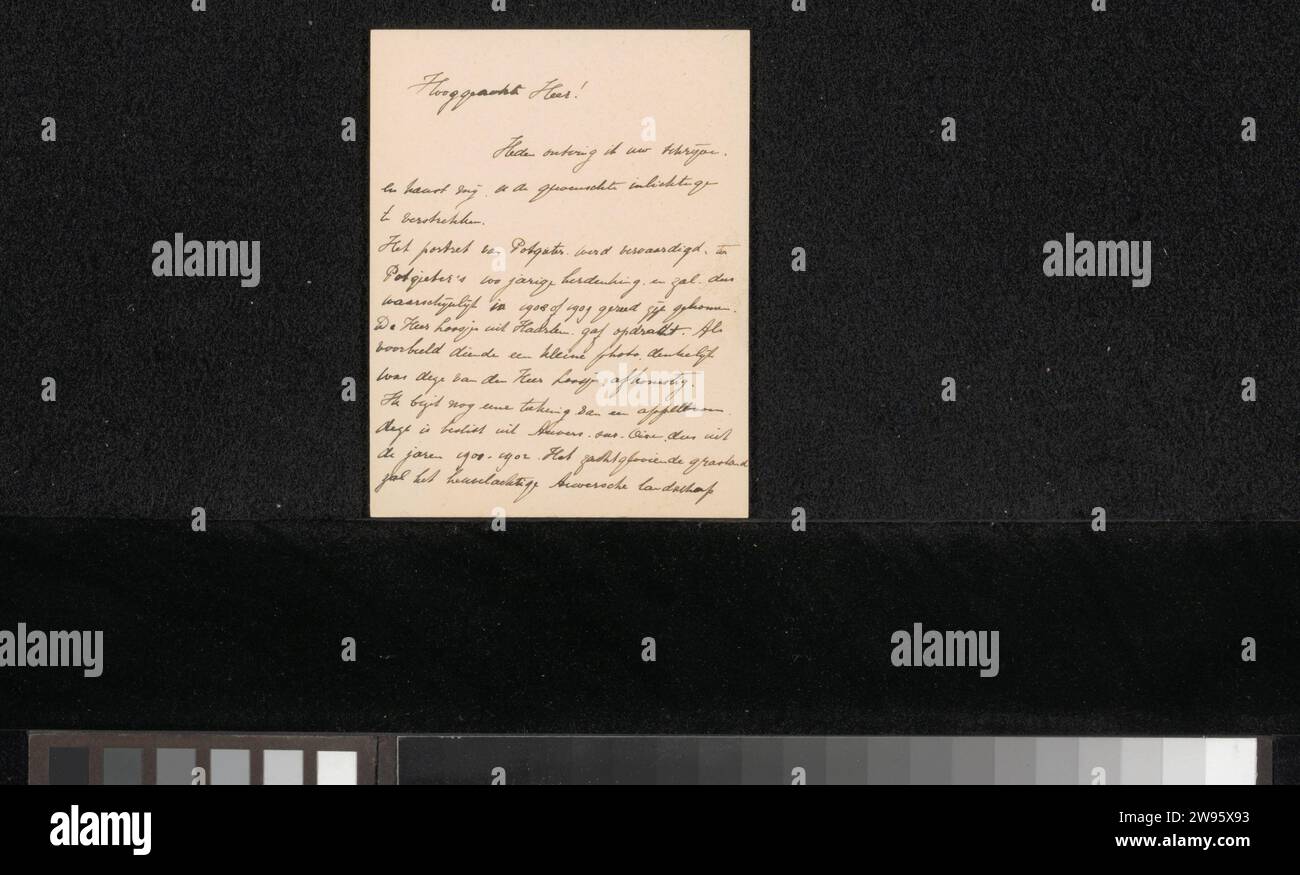 Hooggeachte Heer!
Heden ontving ik uw schrijve.
en haast mij. U de gewenschte inlichtinge
te verstrekken.
Het portret van Potgieter. werd vervaardigd. ter
Potgieter's 100 jarige herdenking. en zal. dus
waarschijnlijk in 1908 of 1909 gereed zijn gekomen.
De Heer Loosjes uit Haarlem. gaf opdracht. Als
voorbeeld diende een kleine photo. denkelijk
was deze van den Heer Loosjes afkomstig.
Ik bezit nog eene teekening van een appelboom
deze is bestist uit Auvers. sur. Oise. dus uit
de jaren 1900-1902. Het zacht glooiende grasland
zal het heuvelachtige Auversche landschap
alamy
alamy
alamy
alamy
alamy
alamy
Image ID: 2W95X93
www.alamy.com